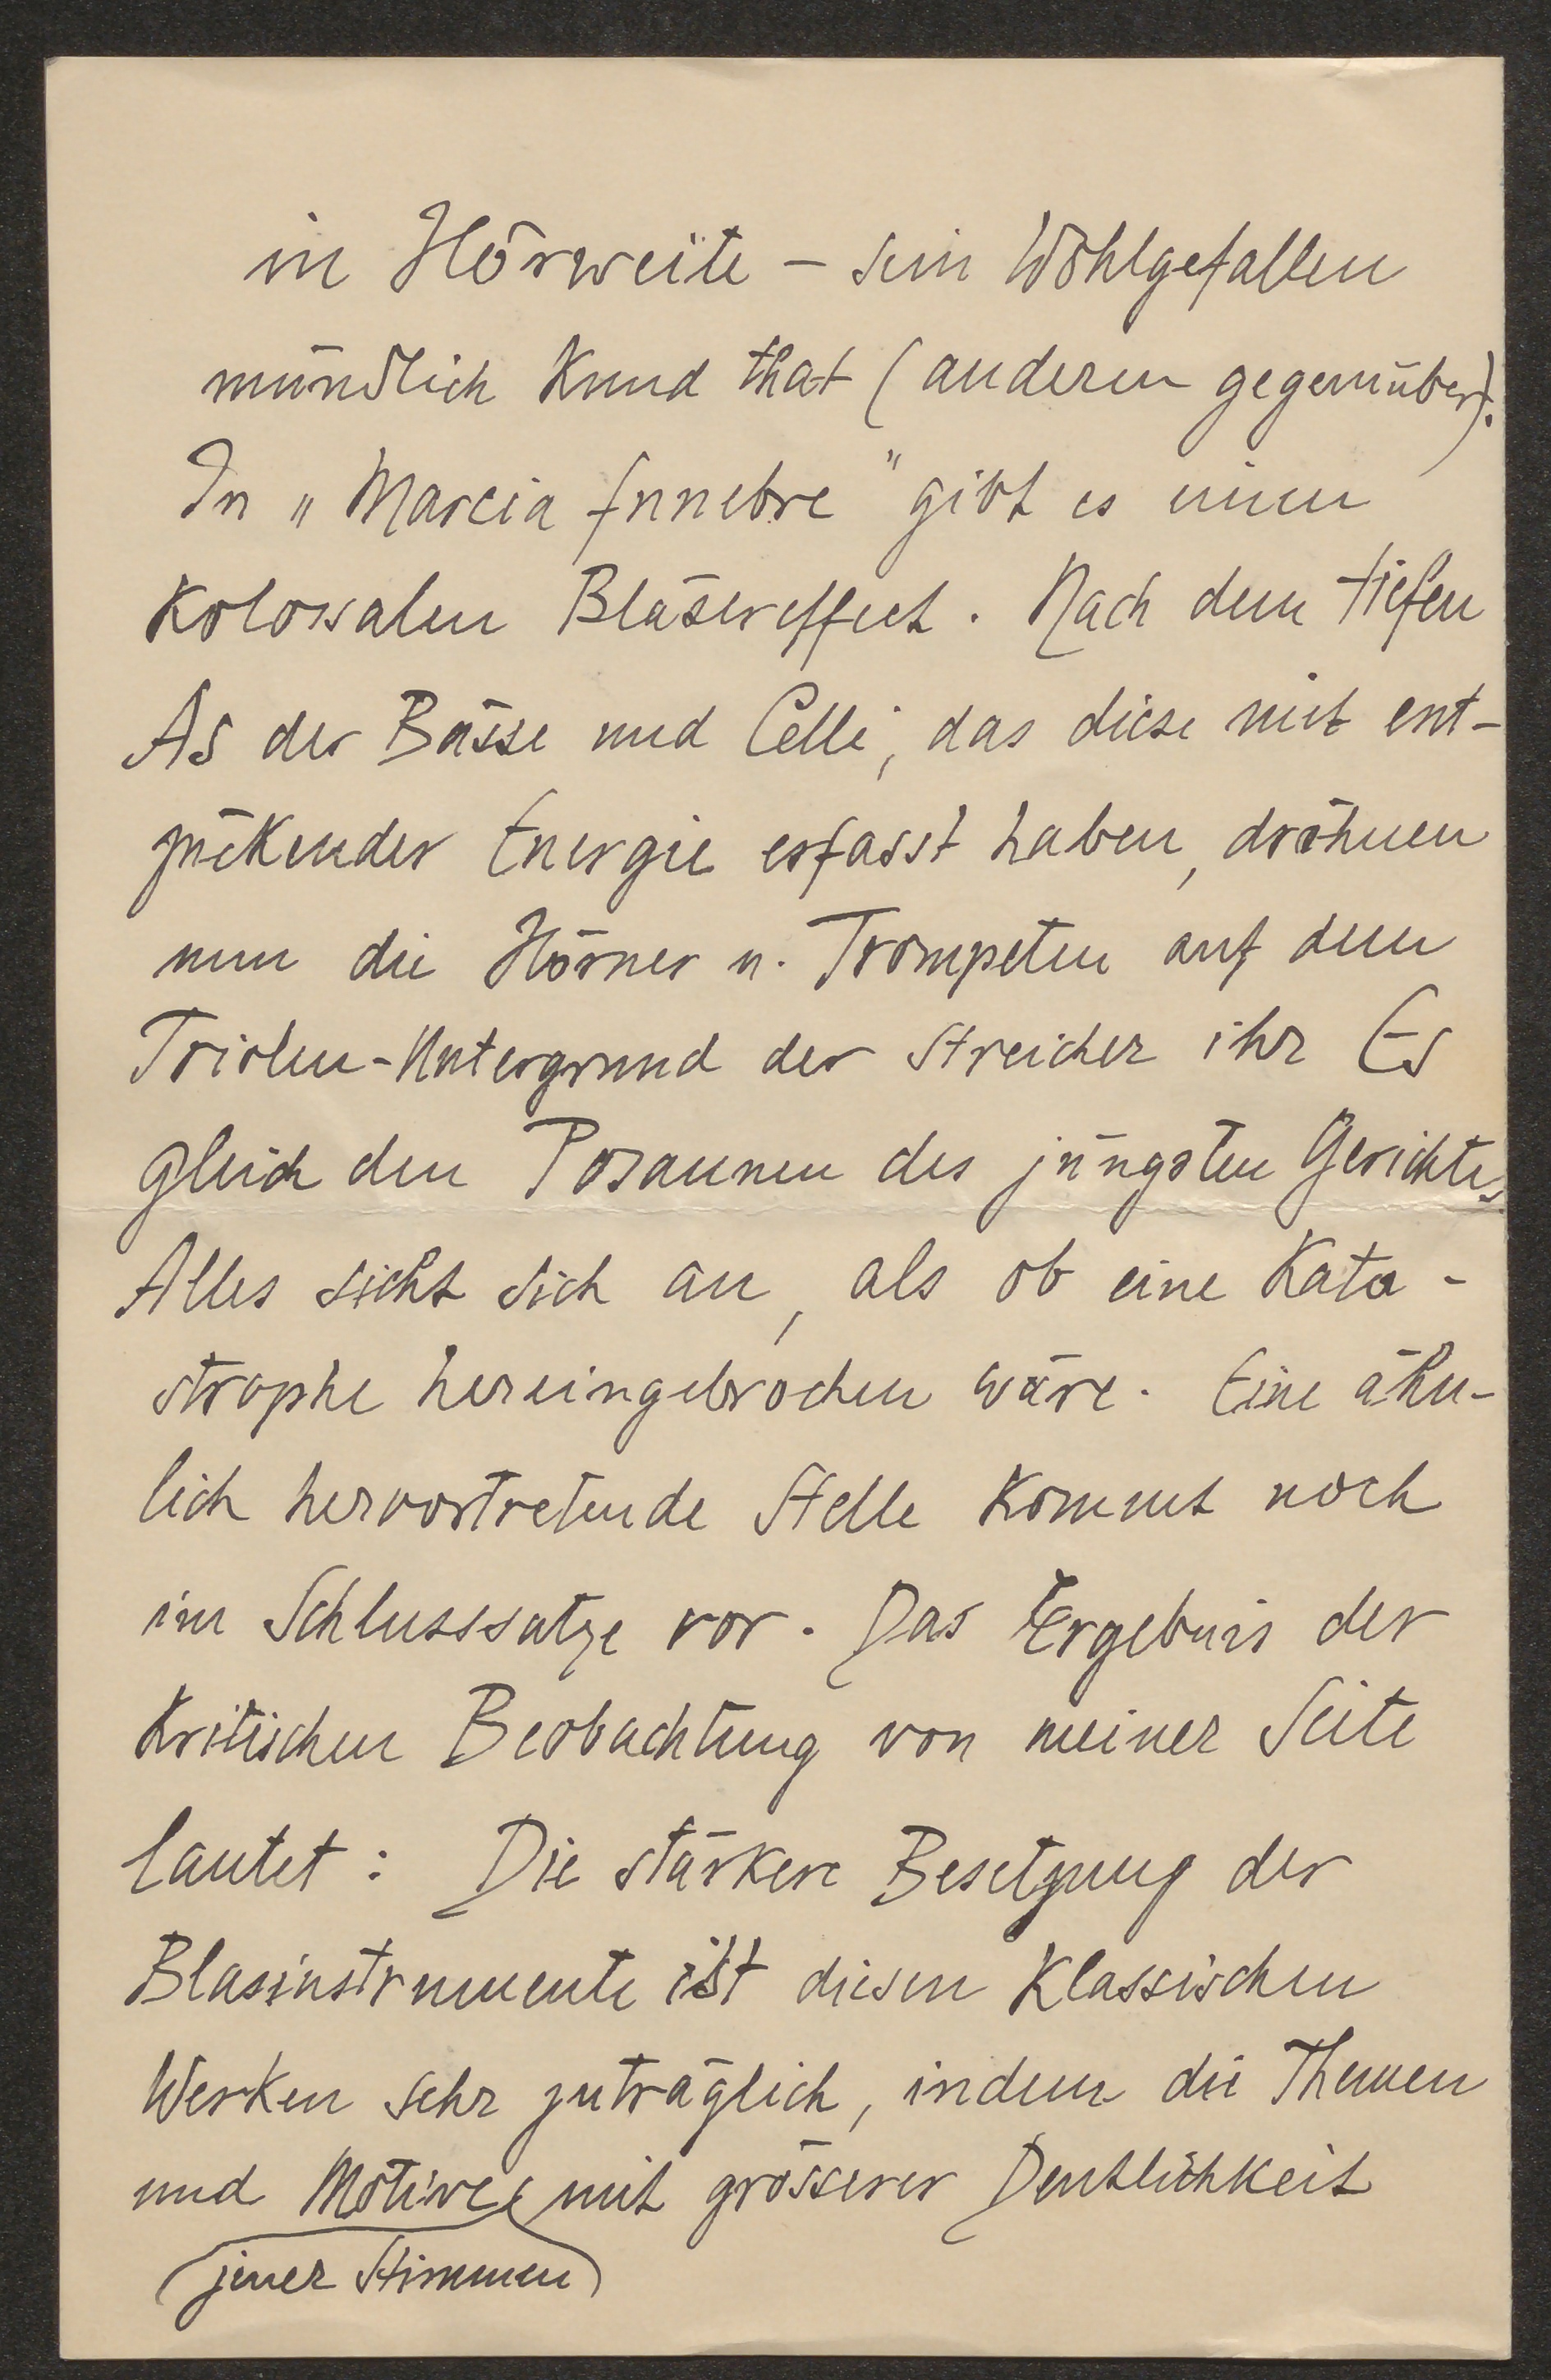 in Hörweite – sein Wohlgefallen
mündlich Kund that (anderen gegenüber).
In „Marcia funebre" gibt es einen
Kolossalen Bläsereffect. Nach dem tiefen
As der Bässe und Celli, das diese mit ent-
zückender Energie erfasst haben, dröhnen
nun die Hörner u. Trompeten auf dem
Triolen-Untergrund der Streicher ihr Es
gleich den Posaunen des jüngsten Gerichtes.
Alles sieht sich an, als ob eine Kata-
strophe hereingebrochen wäre. Eine ähn-
lich hervortretende Stelle Kommt noch
im Schlusssatze vor. Das Ergebnis der
Kritischen Beobachtung von meiner Seite
lautet: Die stärkere Besetzung der
Blasinstrumente ist diesen Klassischen
Werken sehr zuträglich, indem die Themen
und Motive mit grösserer Deutlichkeit
jener Stimmen